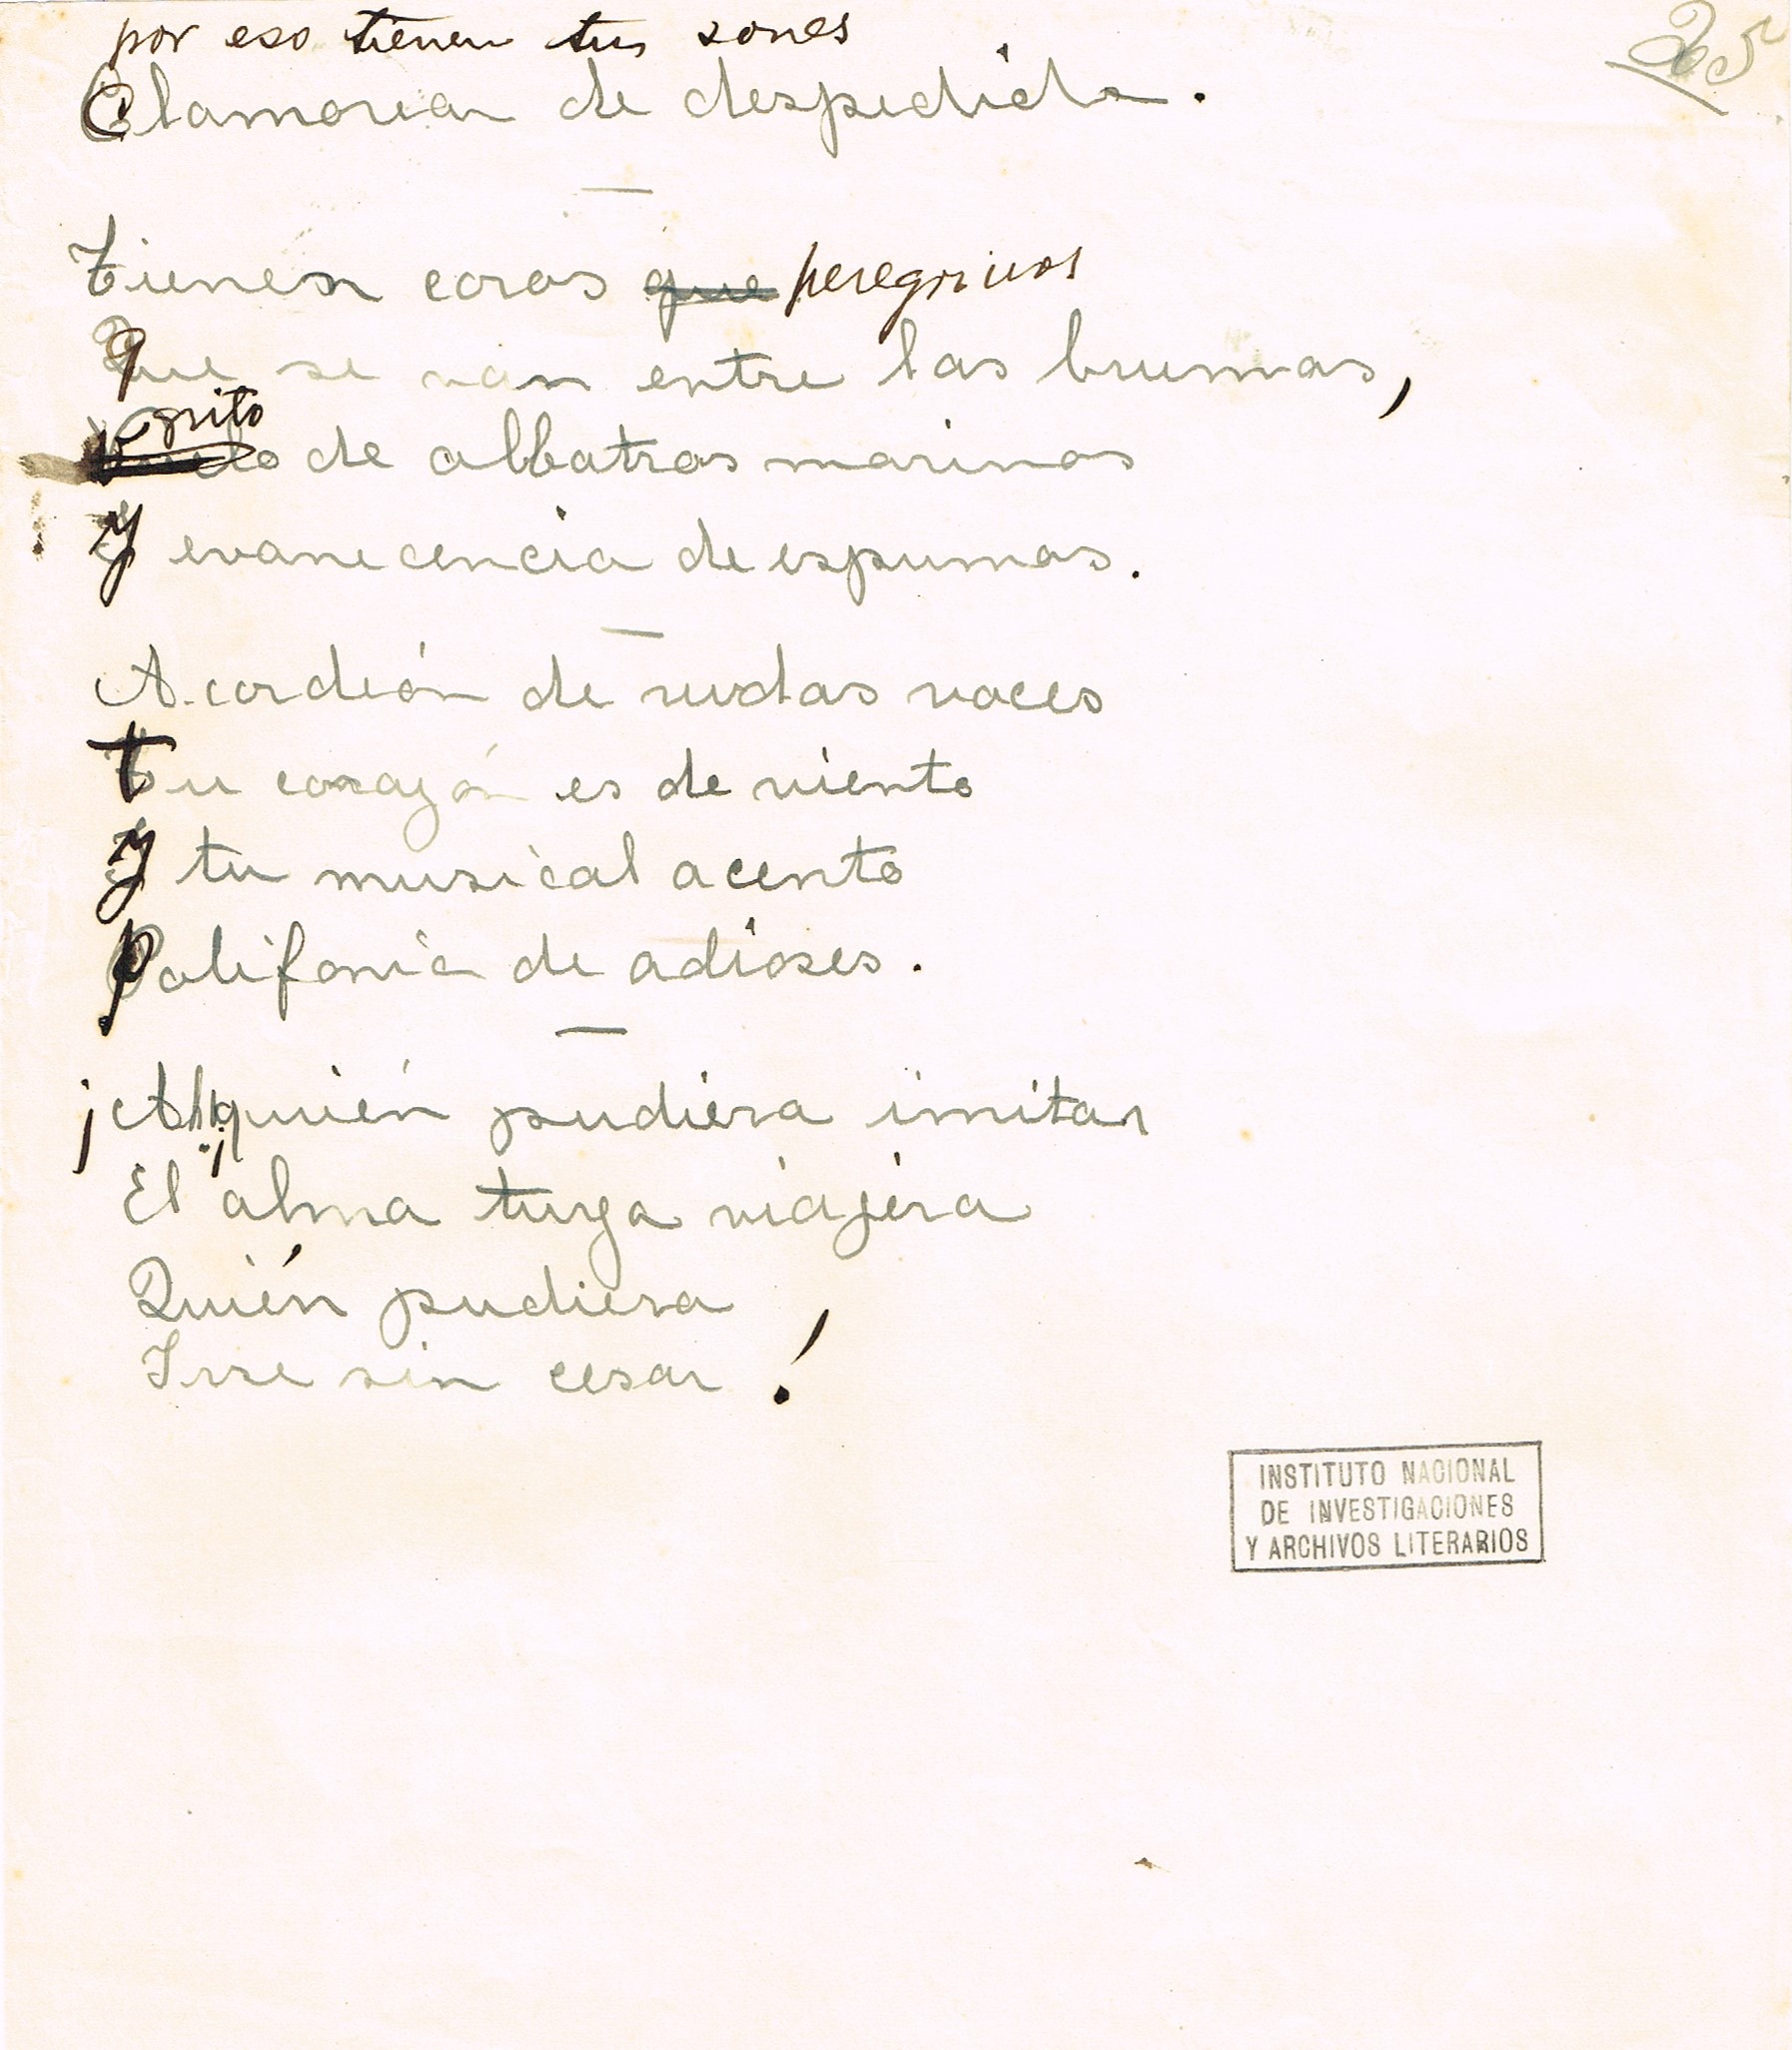 205
por eso tienen tus sones
clamorear de despedida.
Tienen coros que peregrinos
que se van entre las brumas,
grito
Vuelo de albatros marinos
y evanecencia de espumas.
Acordeón de rudas voces
tu corazón es de viento
y tu musical acento
polifonía de adioses.
¡Ah! ¡quién pudiera imitar
El alma tuya viajera
Quién pudiera
Irse sin cesar!
INSTITUTO NACIONAL
DE INVESTIGACIONES
Y ARCHIVOS LITERARIOS